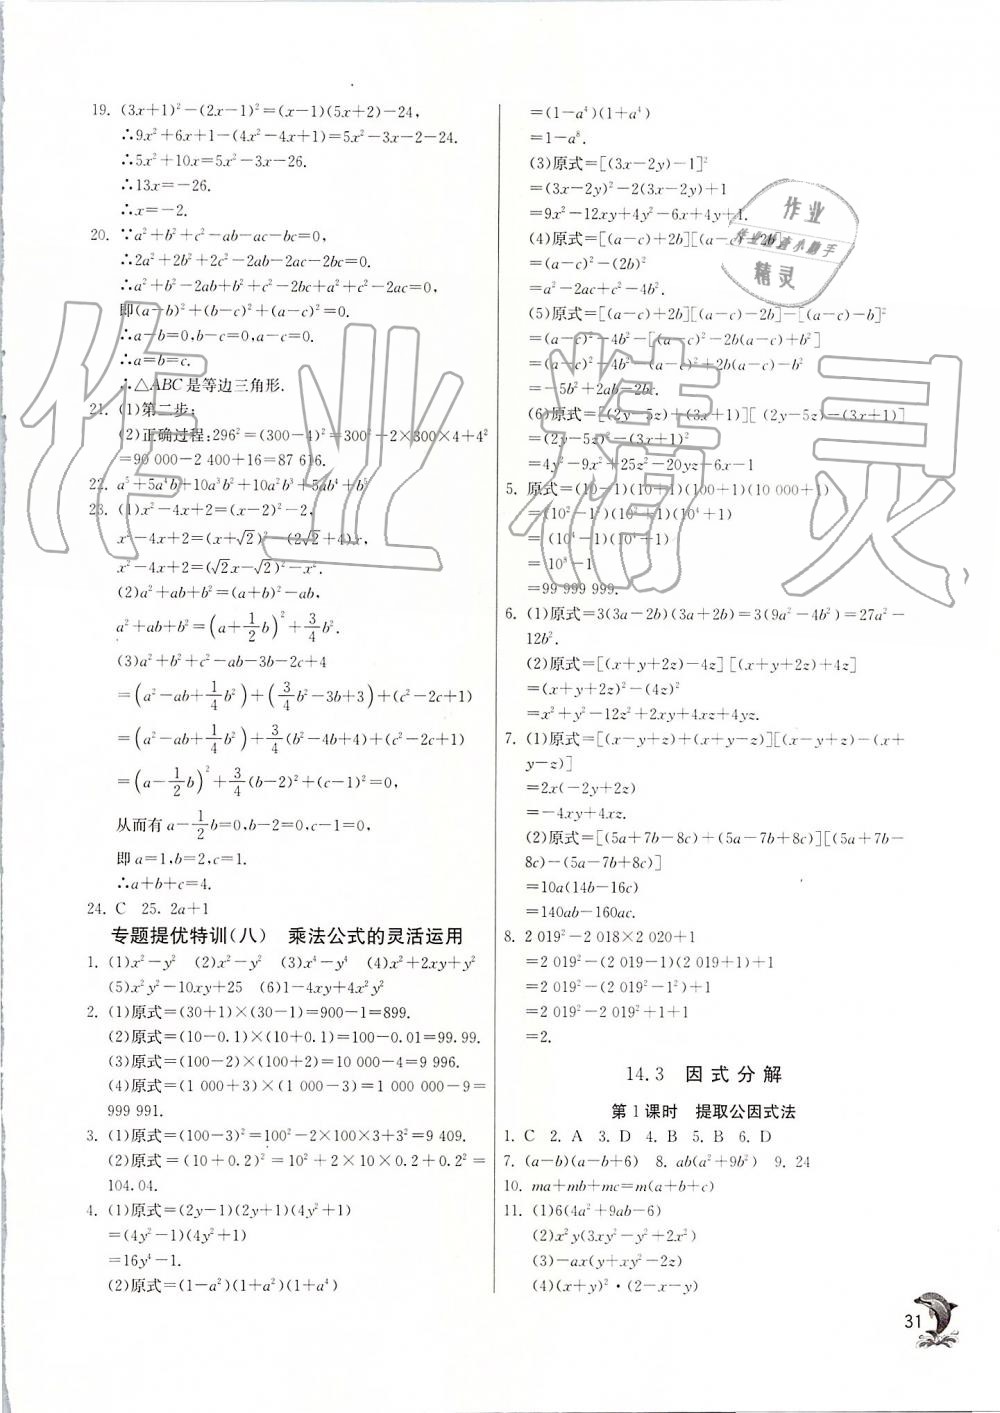 19. (3x+1)²−(2x−1)²=(x−1)(5x+2)−24,
∴9x²+6x+1−(4x²−4x+1)=5x²−3x−2−24.
∴5x²+10x=5x²−3x−26.
∴13x=−26.
∴x=−2.
20. ∵a²+b²+c²−ab−ac−bc=0,
∴2a²+2b²+2c²−2ab−2ac−2bc=0,
∴a²+b²−2ab+b²+c²−2bc+a²+c²−2ac=0,
即(a−b)²+(b−c)²+(a−c)²=0.
∴a−b=0,b−c=0,a−c=0.
∴a=b=c.
∴△ABC是等边三角形.
21. (1)第二步;
(2)正确过程:296²=(300−4)²=300²−2×300×4+4²
=90 000−2 400+16=87 616.
22. a⁵+5a⁴b+10a³b²+10a²b³+5ab⁴+b⁵
23. (1)x²−4x+2=(x−2)²−2,
x²−4x+2=(x+√2)²−(2√2+4)x,
x²−4x+2=(√2x−√2)²−x².
(2)a²+ab+b²=(a+b)²−ab,
a²+ab+b²=(a+1/2b)²+3/4b².
(3)a²+b²+c²−ab−3b−2c+4
=(a²−ab+1/4b²)+(3/4b²−3b+3)+(c²−2c+1)
=(a²−ab+1/4b²)+3/4(b²−4b+4)+(c²−2c+1)
=(a−1/2b)²+3/4(b−2)²+(c−1)²=0,
从而有a−1/2b=0,b−2=0,c−1=0,
即a=1,b=2,c=1.
∴a+b+c=4.
24. C 25. 2a+1
专题提优特训(八) 乘法公式的灵活运用
1. (1)x²−y² (2)x²−y² (3)x⁴−y⁴ (4)x²+2xy+y²
(5)x²y²−10xy+25 (6)1−4xy+4x²y²
2. (1)原式=(30+1)×(30−1)=900−1=899.
(2)原式=(10−0.1)×(10+0.1)=100−0.01=99.99.
(3)原式=(100−2)×(100+2)=10 000−4=9 996.
(4)原式=(1 000+3)×(1 000−3)=1 000 000−9=
999 991.
3. (1)原式=(100−3)²=100²−2×100×3+3²=9 409.
(2)原式=(10+0.2)²=10²+2×10×0.2+0.2²=
104.04.
4. (1)原式=(2y−1)(2y+1)(4y²+1)
=(4y²−1)(4y²+1)
=16y⁴−1.
(2)原式=(1−a²)(1+a²)(1+a⁴)
=(1−a⁴)(1+a⁴)
=1−a⁸.
(3)原式=[(3x−2y)−1]²
=(3x−2y)²−2(3x−2y)+1
=9x²−12xy+4y²−6x+4y+1.
(4)原式=[(a−c)+2b][(a−c)−2b]
=(a−c)²−(2b)²
=a²−2ac+c²−4b².
(5)原式=[(a−c)+2b][(a−c)−2b]−[(a−c)−b]²
=(a−c)²−4b²−[(a−c)²−2b(a−c)+b²]
=(a−c)²−4b²−(a−c)²+2b(a−c)−b²
=−5b²+2ab−2bc.
(6)原式=[(2y−5z)+(3x+1)][(2y−5z)−(3x+1)]
=(2y−5z)²−(3x+1)²
=4y²−9x²+25z²−20yz−6x−1
5. 原式=(10−1)(10+1)(100+1)(10 000+1)
=(10²−1²)(10²+1)(10⁴+1)
=(10⁴−1)(10⁴+1)
=10⁸−1
=99 999 999.
6. (1)原式=3(3a−2b)(3a+2b)=3(9a²−4b²)=27a²−
12b².
(2)原式=[(x+y+2z)−4z][(x+y+2z)+4z]
=(x+y+2z)²−(4z)²
=x²+y²−12z²+2xy+4xz+4yz.
7. (1)原式=[(x−y+z)+(x+y−z)][(x−y+z)−(x+
y−z)]
=2x(−2y+2z)
=−4xy+4xz.
(2)原式=[(5a+7b−8c)+(5a−7b+8c)][(5a+7b−
8c)−(5a−7b+8c)]
=10a(14b−16c)
=140ab−160ac.
8. 2 019²−2 018×2 020+1
=2 019²−(2 019−1)(2 019+1)+1
=2 019²−(2 019²−1²)+1
=2 019²−2 019²+1+1
=2.
14.3 因式分解
第1课时 提取公因式法
1. C 2. A 3. D 4. B 5. B 6. D
7. (a−b)(a−b+6) 8. ab(a²+9b²) 9. 24
10. ma+mb+mc=m(a+b+c)
11. (1)6(4a²+9ab−6)
(2)x²y(3xy²−y²+2x²)
(3)−ax(y+xy²−2z)
(4)(x+y)²·(2−x−y)
31
作业
精灵
作业精灵